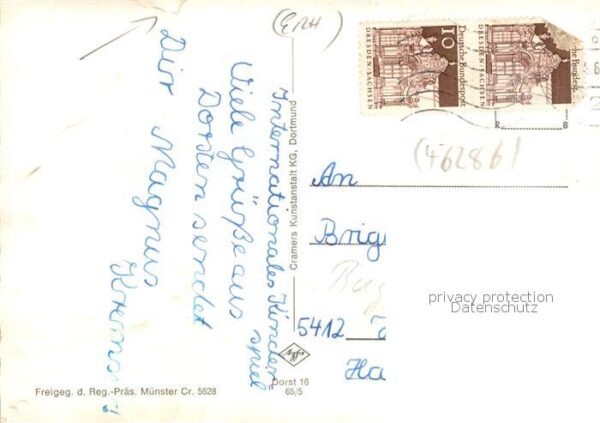 (ERH)
10
Deutsche Bundespost
DRESDEN/SACHSEN
DRESDEN/SACHSEN
(46286)
Internationales Kinder-
spiel
Viele Grüße aus
Dorsten sendet
Dir Magnus
An
Brig
5412
Ha
privacy protection
Datenschutz
Cramers Kunstanstalt KG, Dortmund
Agfa
Dorst 16
65/5
Freigeg. d. Reg.-Präs. Münster Cr. 5628